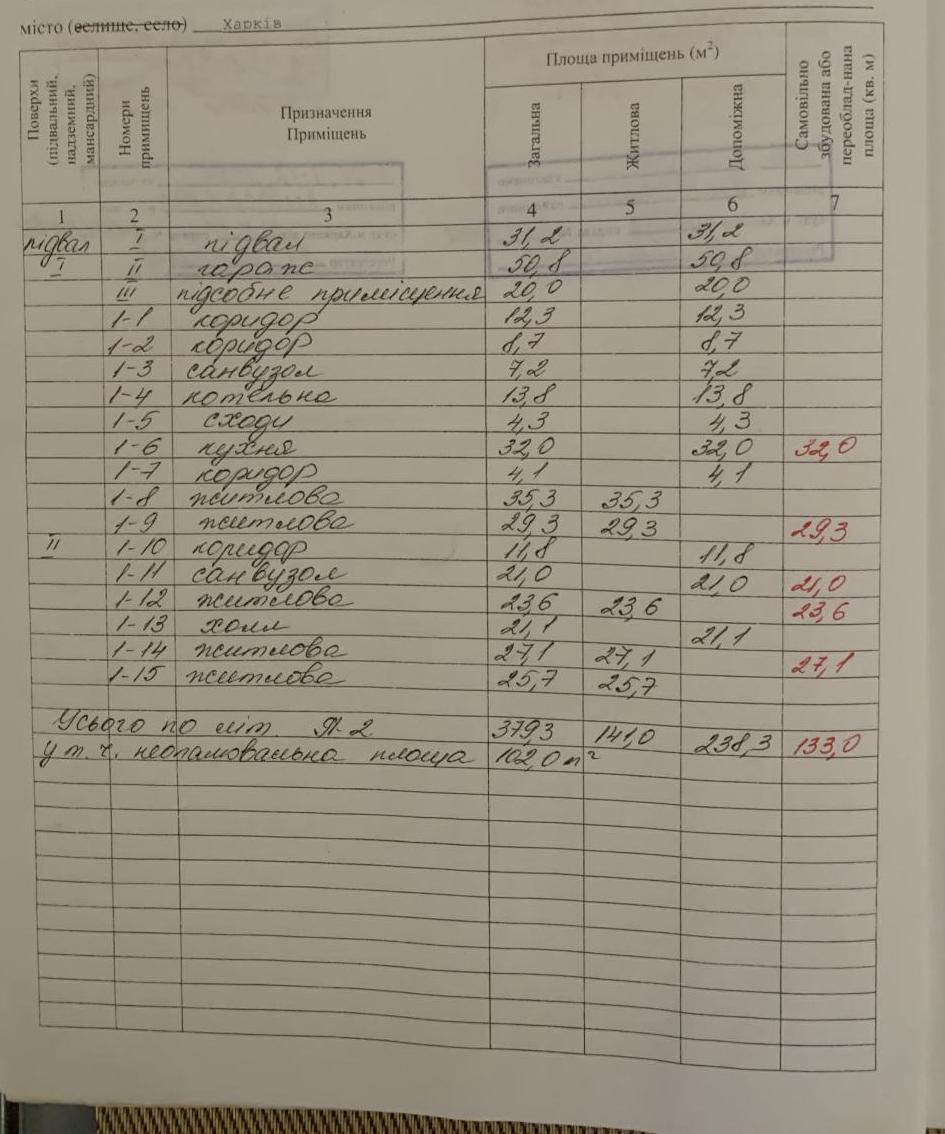 місто (селище, село) Харків
Поверхи (підвальний, надземний, мансардний) Номери примищень Призначення Приміщень Площа приміщень (м²) Загальна Житлова Допоміжна Самовільно збудована або переоблад-нана площа (кв. м)
1 2 3 4 5 6 7
підвал I підвал 31,2 31,2
I II гараж 50,8 50,8
III підсобне приміщення 20,0 20,0
1-1 коридор 12,3 12,3
1-2 коридор 8,7 8,7
1-3 санвузол 7,2 7,2
1-4 котельна 13,8 13,8
1-5 сходи 4,3 4,3
1-6 кухня 32,0 32,0 32,0
1-7 коридор 4,1 4,1
1-8 житлова 35,3 35,3
1-9 житлова 29,3 29,3 29,3
II 1-10 коридор 11,8 11,8
1-11 санвузол 21,0 21,0 21,0
1-12 житлова 23,6 23,6 23,6
1-13 холл 21,1 21,1
1-14 житлова 27,1 27,1 27,1
1-15 житлова 25,7 25,7
Усього по літ. 379,3 141,0 238,3 133,0
у т.ч. неопалювальна площа 102,0 м²